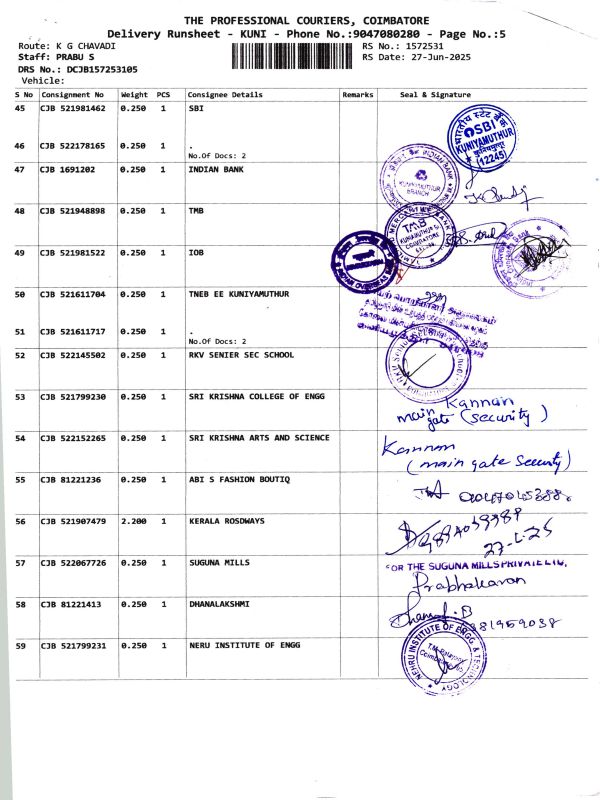 THE PROFESSIONAL COURIERS, COIMBATORE
Delivery Runsheet - KUNI - Phone No.:9047080280 - Page No.:5
Route: K G CHAVADI RS No.: 1572531
Staff: PRABU S RS Date: 27-Jun-2025
DRS No.: DCJB157253105
Vehicle:
S No Consignment No Weight PCS Consignee Details Remarks Seal & Signature
45 CJB 521981462 0.250 1 SBI
भारतीय स्टेट बैंक
SBI
KUNIYAMUTHUR
(12245)
46 CJB 522178165 0.250 1 .
No.Of Docs: 2
47 CJB 1691202 0.250 1 INDIAN BANK
INDIAN BANK
KUNIYAMUTHUR
BRANCH
48 CJB 521948898 0.250 1 TMB
TMB
49 CJB 521981522 0.250 1 IOB
50 CJB 521611704 0.250 1 TNEB EE KUNIYAMUTHUR
51 CJB 521611717 0.250 1 .
No.Of Docs: 2
52 CJB 522145502 0.250 1 RKV SENIER SEC SCHOOL
53 CJB 521799230 0.250 1 SRI KRISHNA COLLEGE OF ENGG
Kannan
main gate (security)
54 CJB 522152265 0.250 1 SRI KRISHNA ARTS AND SCIENCE
Kannan
(main gate Security)
55 CJB 81221236 0.250 1 ABI S FASHION BOUTIQ
56 CJB 521907479 2.200 1 KERALA ROSDWAYS
57 CJB 522067726 0.250 1 SUGUNA MILLS
FOR THE SUGUNA MILLS PRIVATE LTD,
Prabhakaran
58 CJB 81221413 0.250 1 DHANALAKSHMI
59 CJB 521799231 0.250 1 NERU INSTITUTE OF ENGG
NEHRU INSTITUTE OF ENGG. & TECHNOLOGY